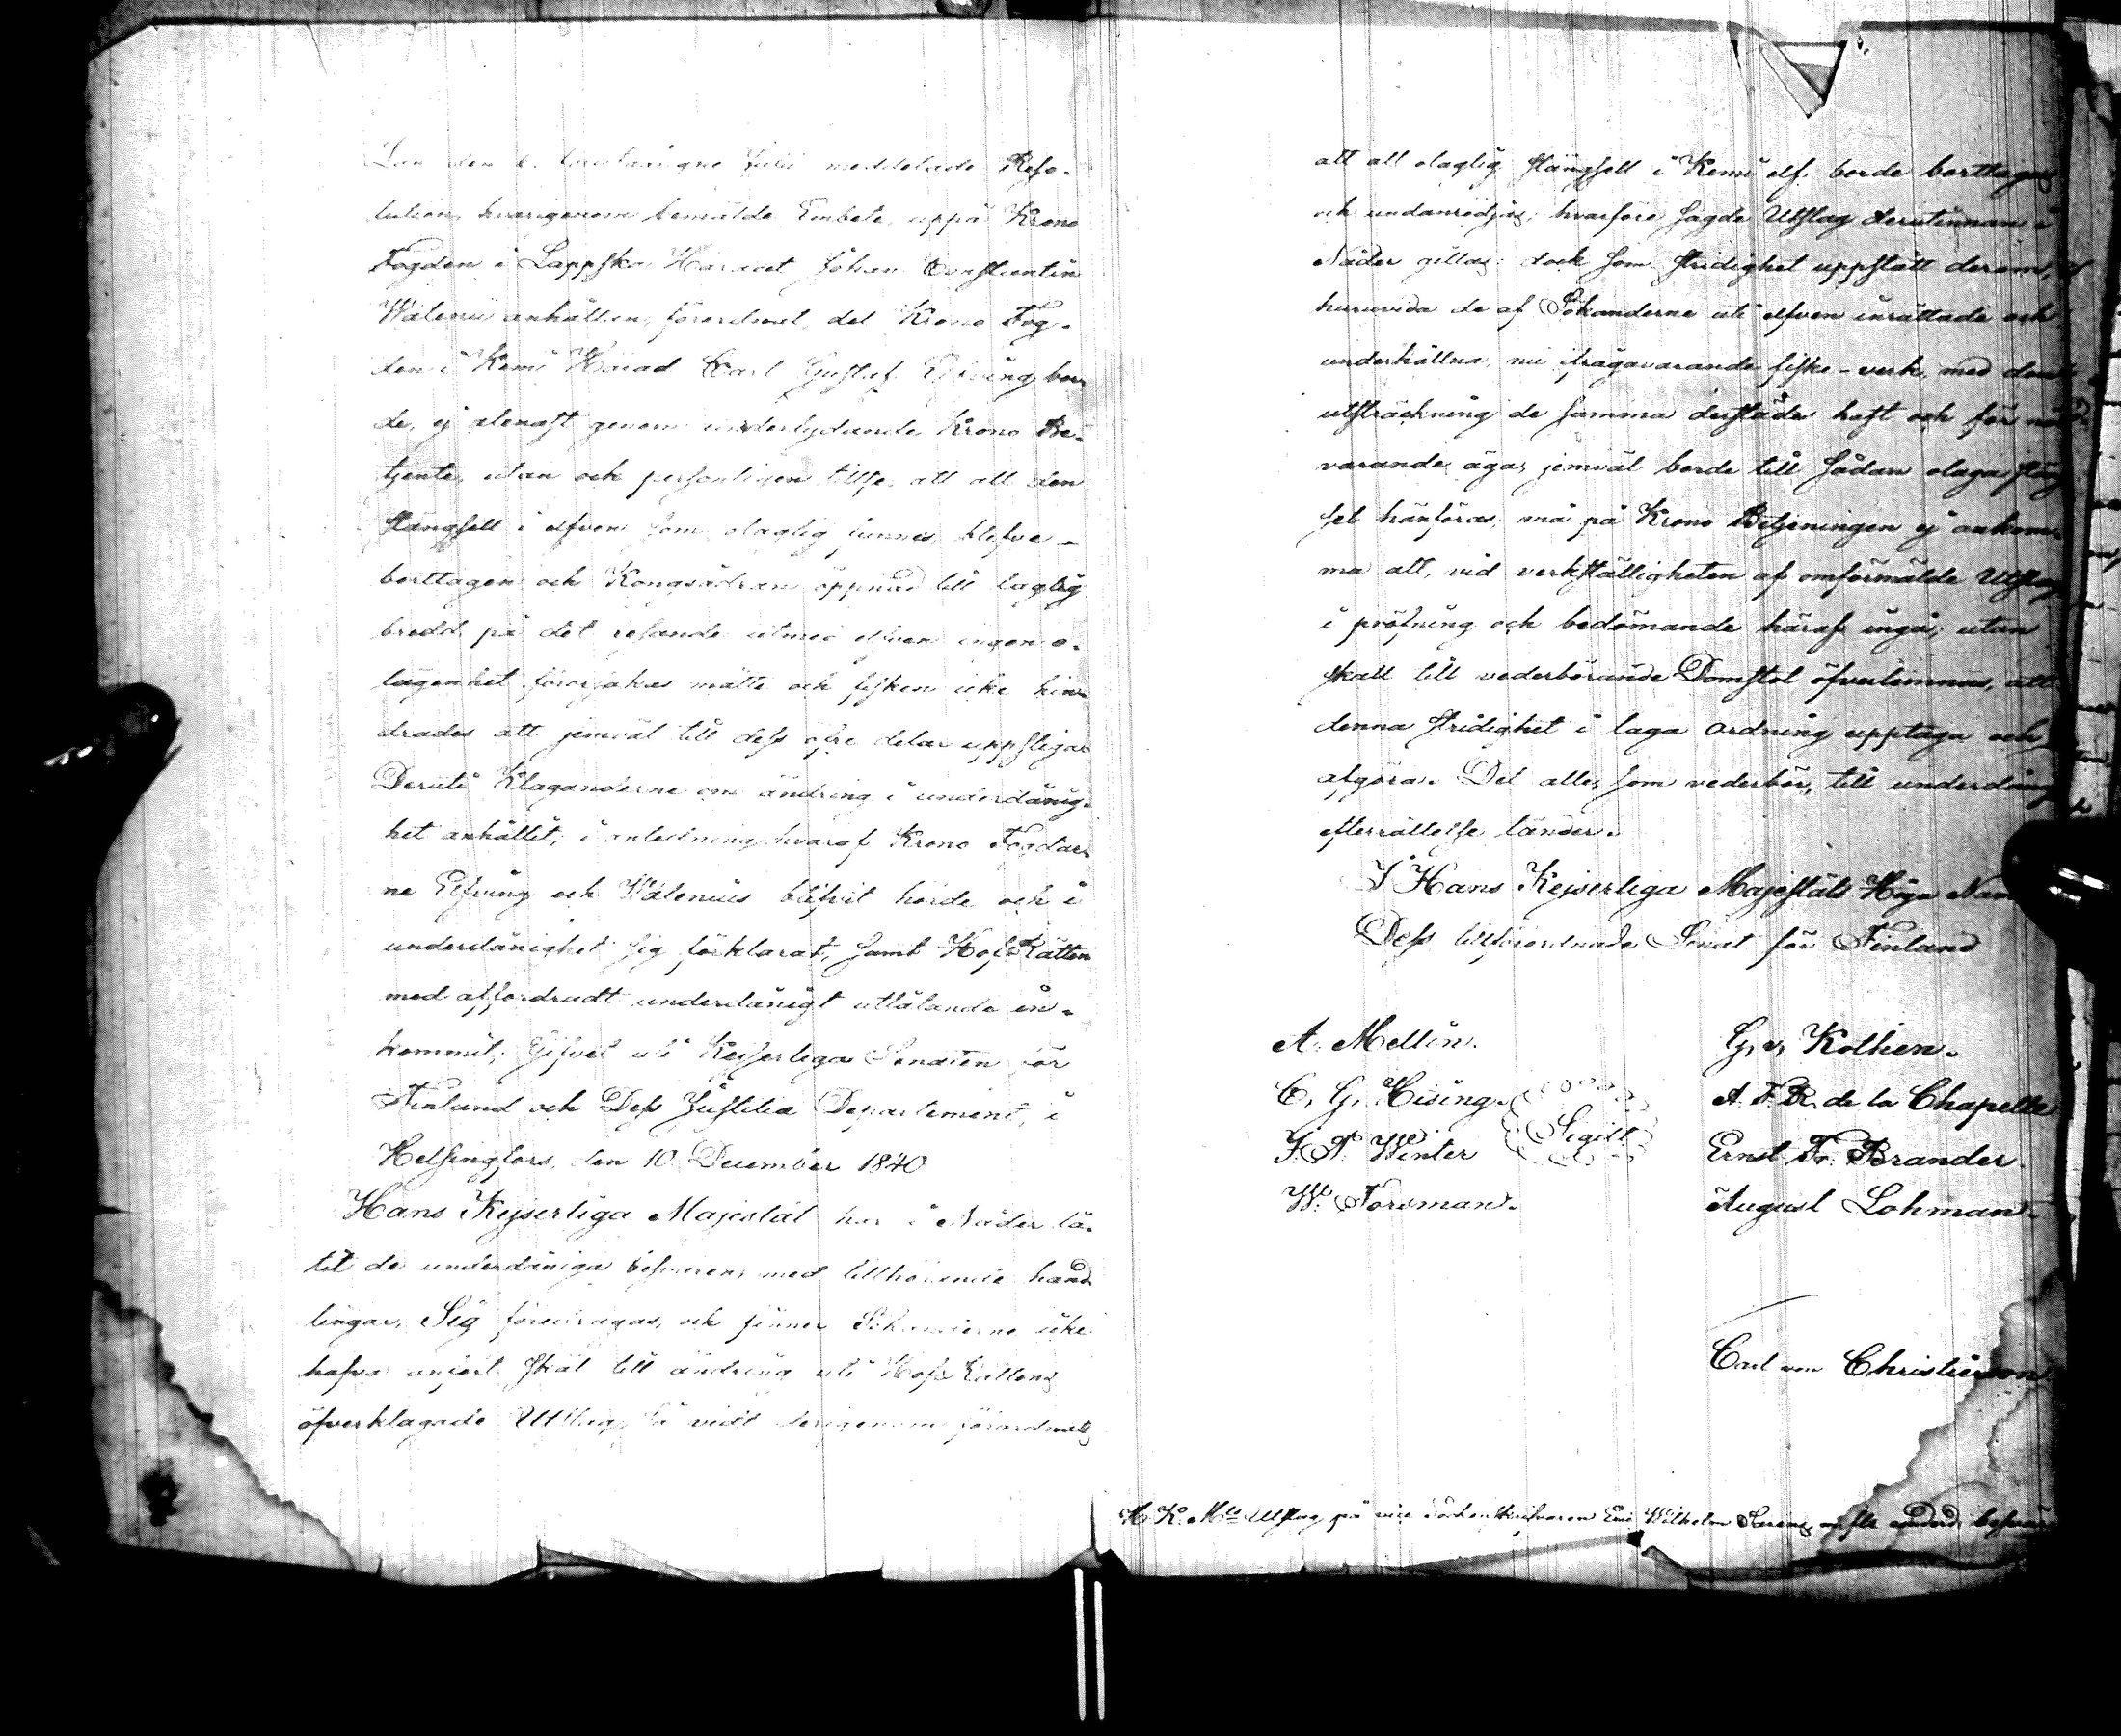 Län den 6. sistlidne Julii meddelade Reso-
lution, hvarigenom bemälde Embete, uppå Krono
Fogden i Lappska Häradet Johan Constantin
Waleni anhållan, förordnat, det Krono Fog-
den i Kemi Härad Carl Gustaf Elfving bor-
de, ej allenast genom underlydande Krono Be-
tjente, utan och personligen tillse, att all den
stängsell i elfven som olaglig funnes, blefve
borttagen och Kongsådran öppnad till laglig
bredd, på det resande utmed elfven ingen o-
lägenhet förorsakas måtte och fisken icke hin-
drades att jemväl till dess öfre delar uppstiga.
Deruti Klaganderne om ändring i underdånig-
het anhållit; i anledning hvaraf Krono Fogdar-
ne Elfving och Walenius blifvit hörde och i
underdånighet sig förklarat, samt HofRätten
med affordradt underdånigt utlåtande in-
kommit; Gifvet uti Kejserliga Senaten för
Finland och Dess Justitiæ Departement, i
Helsingfors, den 10 December 1840
Hans Kejserliga Majestät har i Nåder lå-
tit de underdåniga besvären, med tillhörande hand-
lingar, Sig föredragas, och finner Sökanderne icke
hafva anfört skäl till ändring uti Hofs Rättens
öfverklagade Utslag, så vidt derigenom förordnats
att all olaglig stängsell i Kemi elf borde borttagas
och undanrödjas; hvarföre sagde Utslag derutinnan i
Nåder gillas: dock som stridighet uppstått derom,
huruvida de af Sökanderne uti elfven inrättade och
underhållna, nu ifrågavarande fiske-verk, med den
utsträckning de samma derstädes haft och för när
varande äga, jemväl borde till sådan olaga stäng
sel hänföras; må på Krono Betjeningen ej ankom-
ma att, vid verkställigheten af omförmälde Utslag
i pröfning och bedömande häraf ingå; utan
skall till vederbörande Domstol öfverlemnas, att
denna stridighet i laga ordning upptaga och
afgöra. Det alle, som vederbör, till underdånig
efterrättelse länder.
I Hans Kejserliga Majestäts Höga Namn
Dess tillförordnade Senat för Finland
A. Mellin. G. v. Kothen.
C. G. Hising. A. F. R. de la Chapelle
Sigill
J. A. Winter Ernst F. Brander.
W. Forsman. August Lohman.
Carl von Christierson
H. K. Mts Utslag på vice Sockenskrifvaren Eric Wilhelm m fle underd. besvär